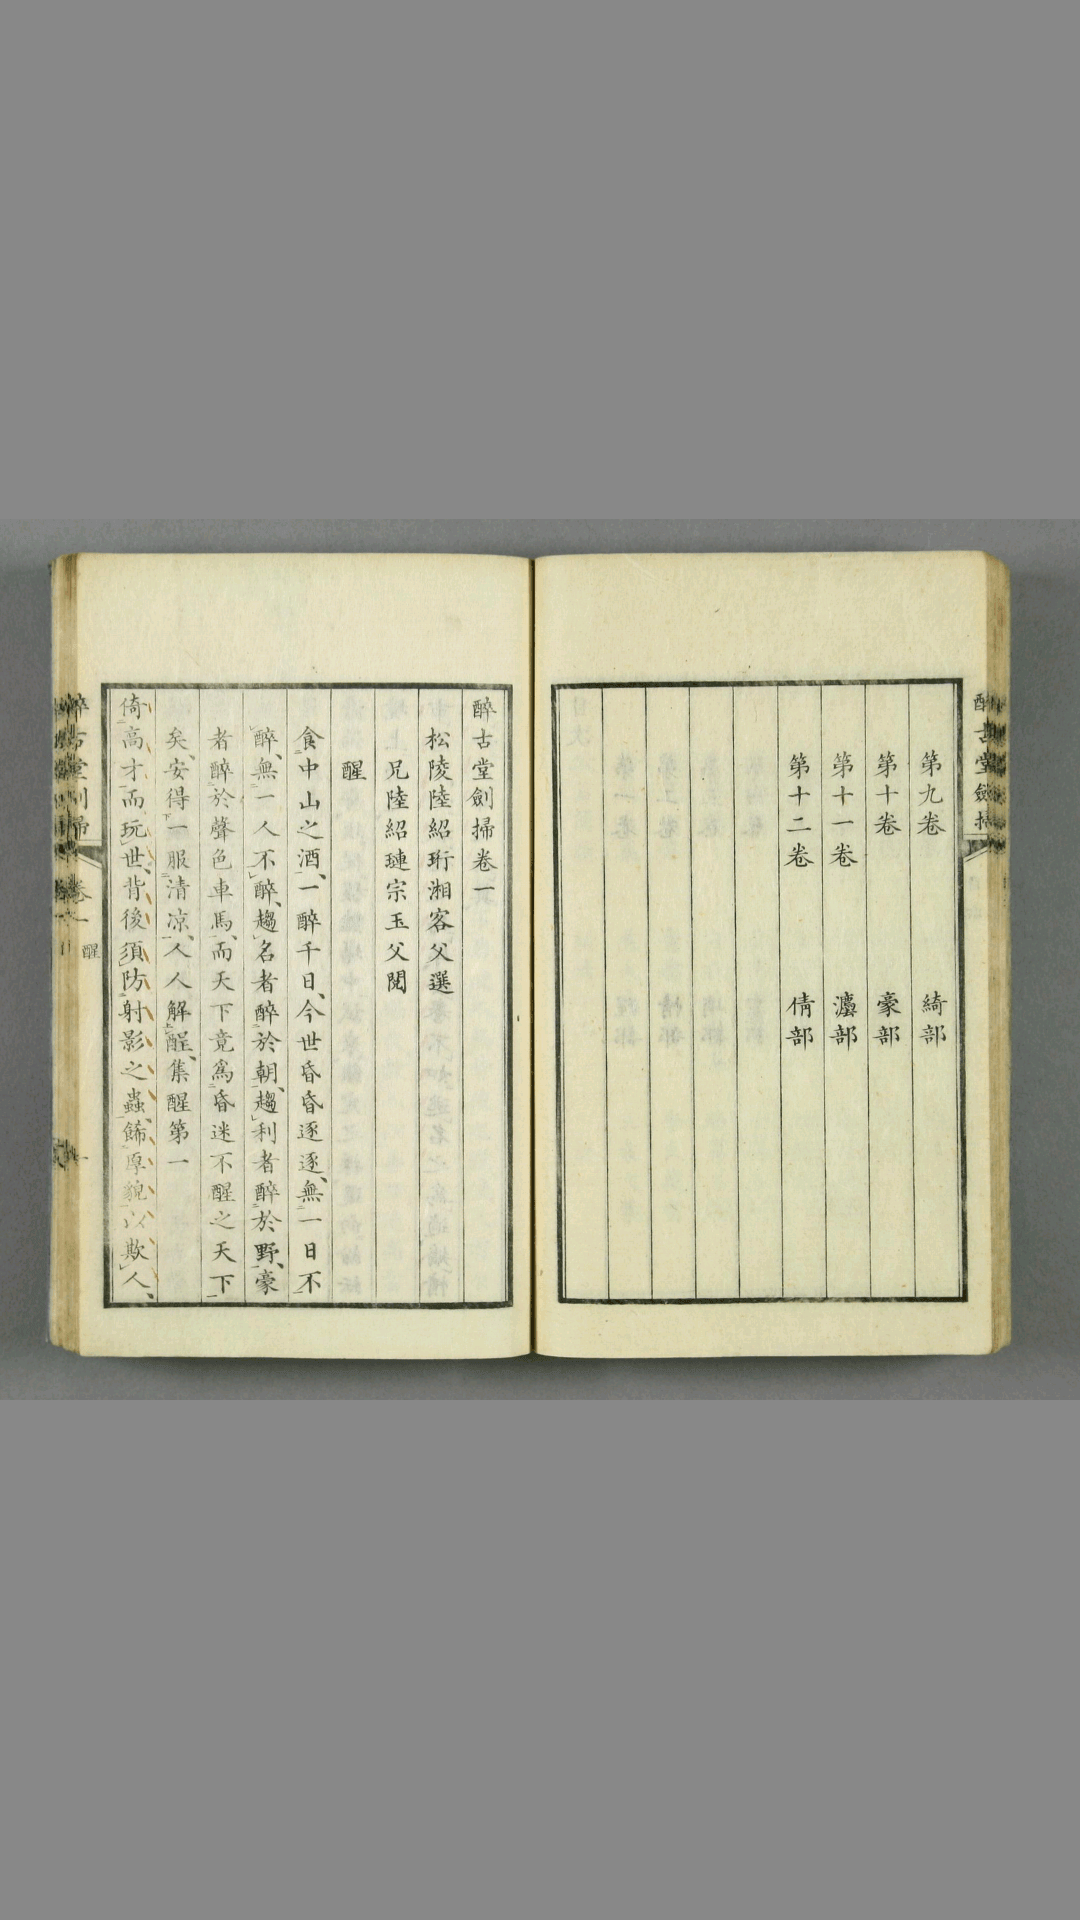 第九卷 綺部
第十卷 豪部
第十一卷 灋部
第十二卷 倩部
醉古堂劍掃
醉古堂劍掃卷一
松陵陸紹珩湘客父選
兄陸紹璉宗玉父閱
醒
食中山之酒、一醉千日、今世昏昏逐逐、無一日不
醉、無一人不醉、趨名者醉於朝、趨利者醉於野、豪
者醉於聲色車馬、而天下竟爲昏迷不醒之天下
矣、安得一服清凉、人人解酲、集醒第一
倚高才而玩世、背後須防射影之蟲、飾厚貌以欺人、
卷一
醒
一